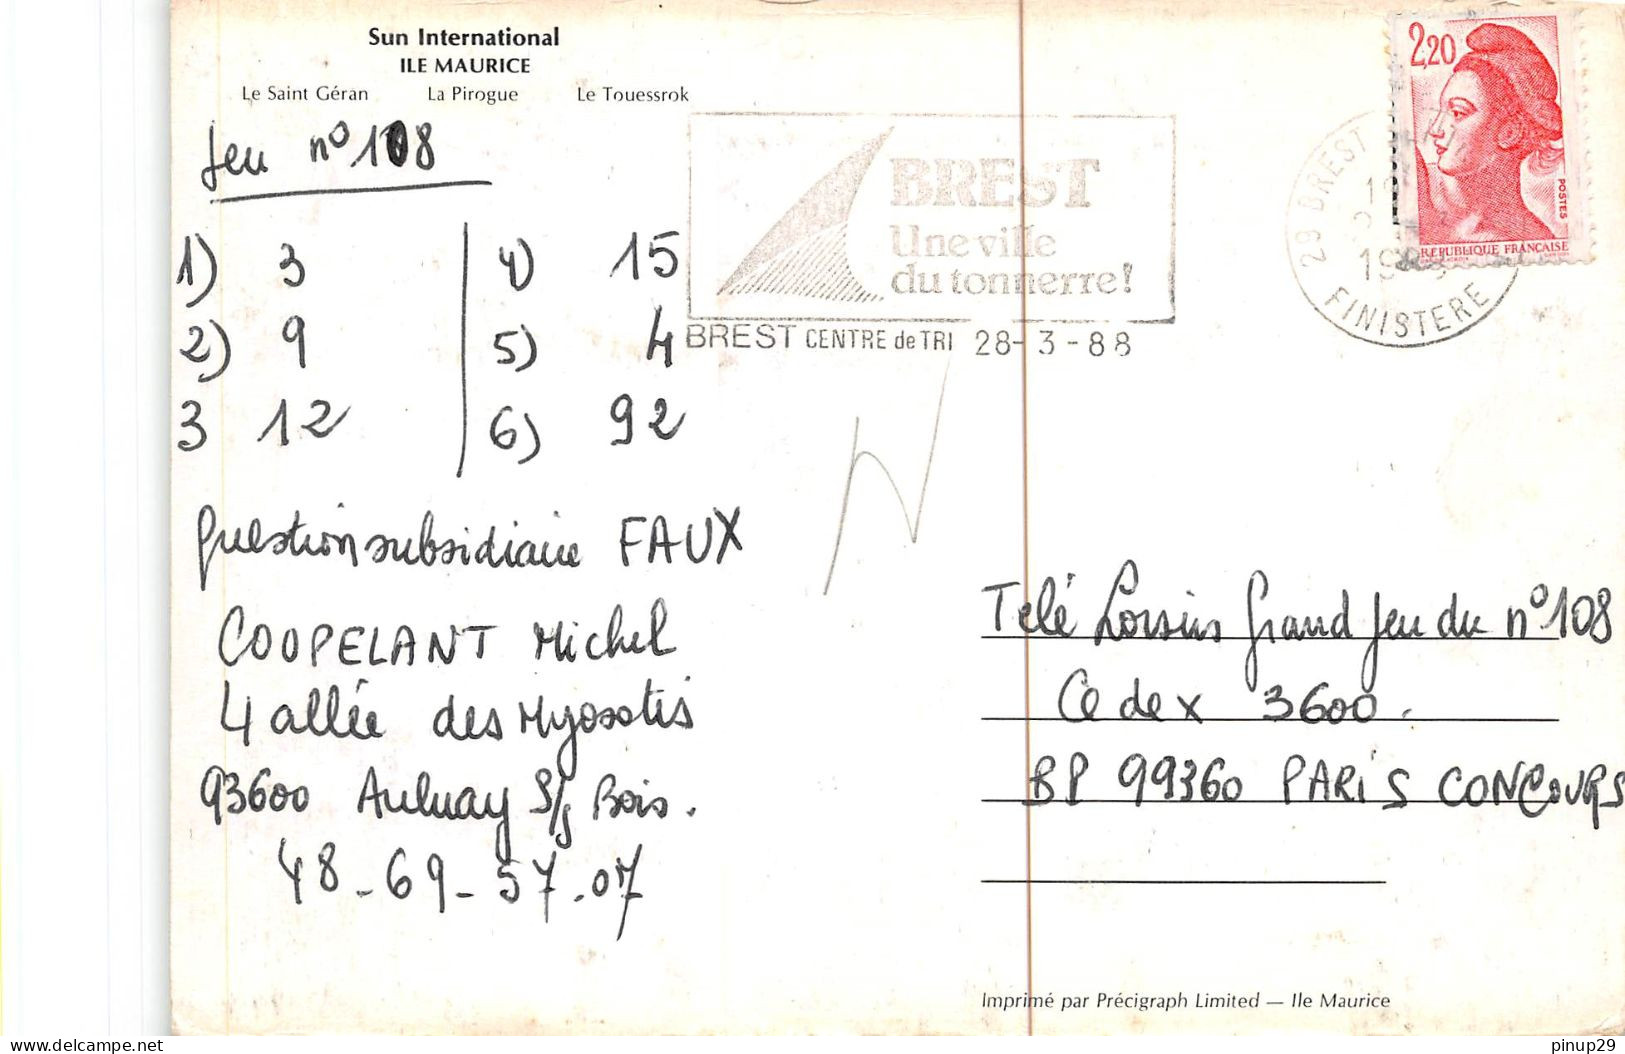 Sun International
ILE MAURICE
Le Saint Géran La Pirogue Le Touessrok
Jeu n° 108
1) 3 4) 15
2) 9 5) 4
3 12 6) 92
question subsidiaire FAUX
COOPELANT Michel
4 allée des Myosotis
93600 Aulnay S/s Bois.
48-69-57-07
BREST
Une ville
du tonnerre!
BREST CENTRE de TRI 28-3-88
29 BREST
FINISTERE
2,20
POSTES
REPUBLIQUE FRANÇAISE
Télé Loisirs Grand Jeu du n° 108
Cedex 3600.
BP 99360 PARIS CONCOURS
Imprimé par Précigraph Limited — Ile Maurice
www.delcampe.net
pinup29